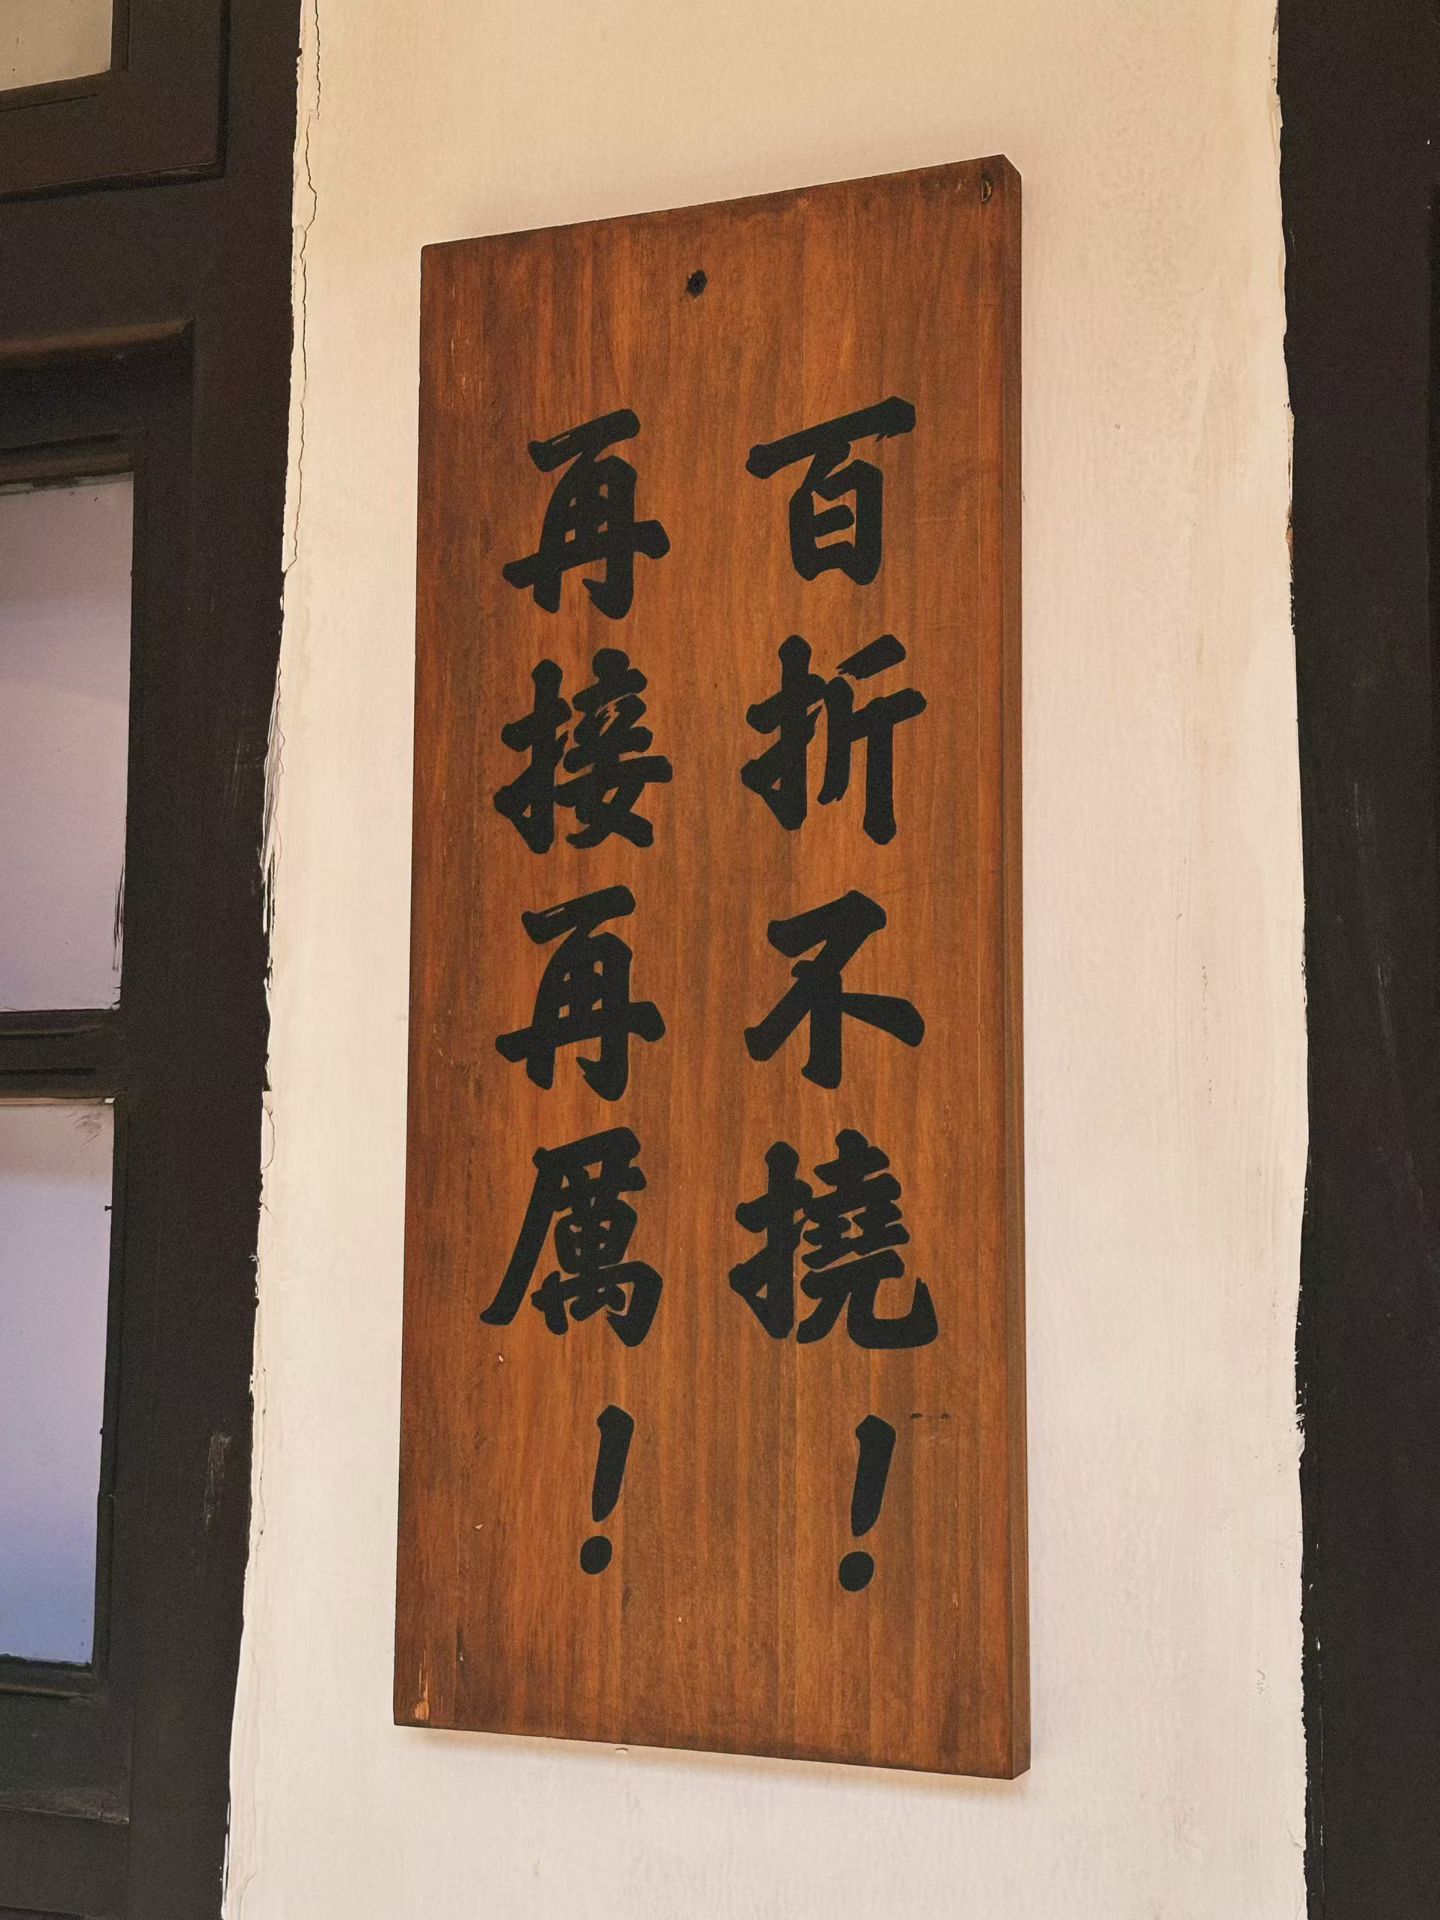 百折不撓！
再接再厲！